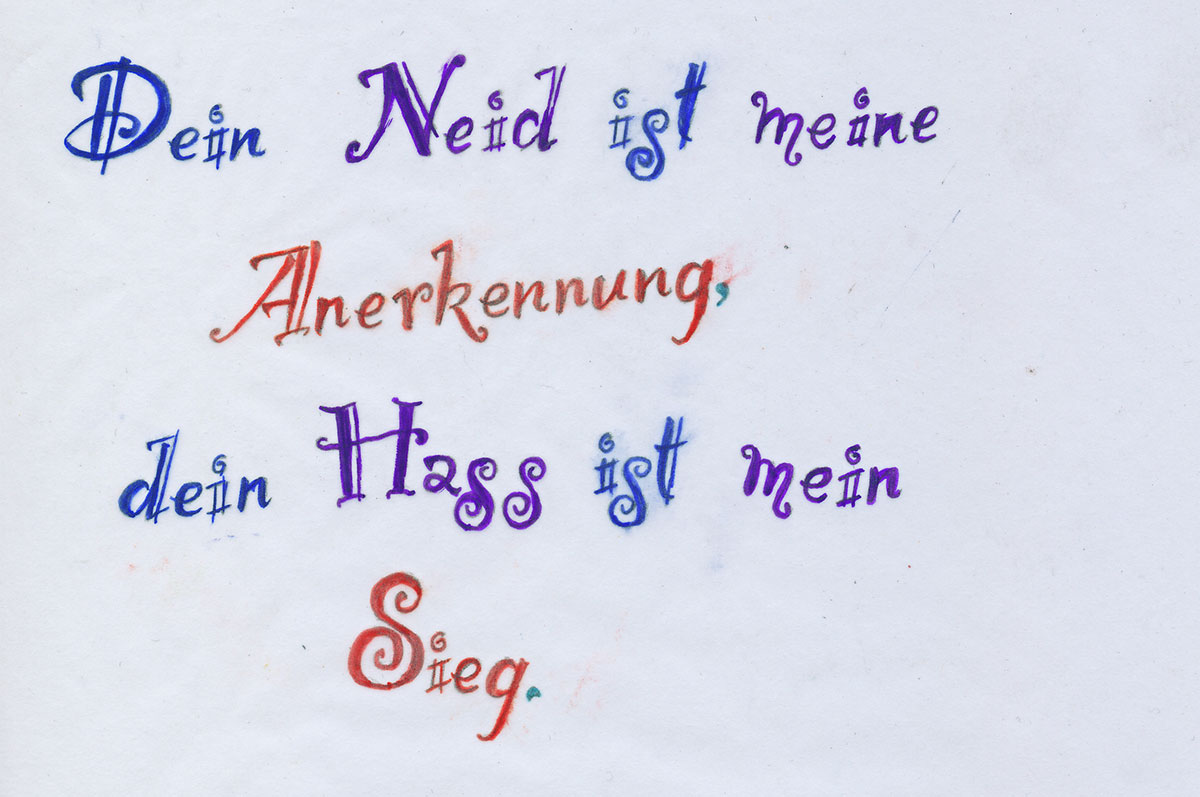 Dein Neid ist meine
Anerkennung,
dein Hass ist mein
Sieg.